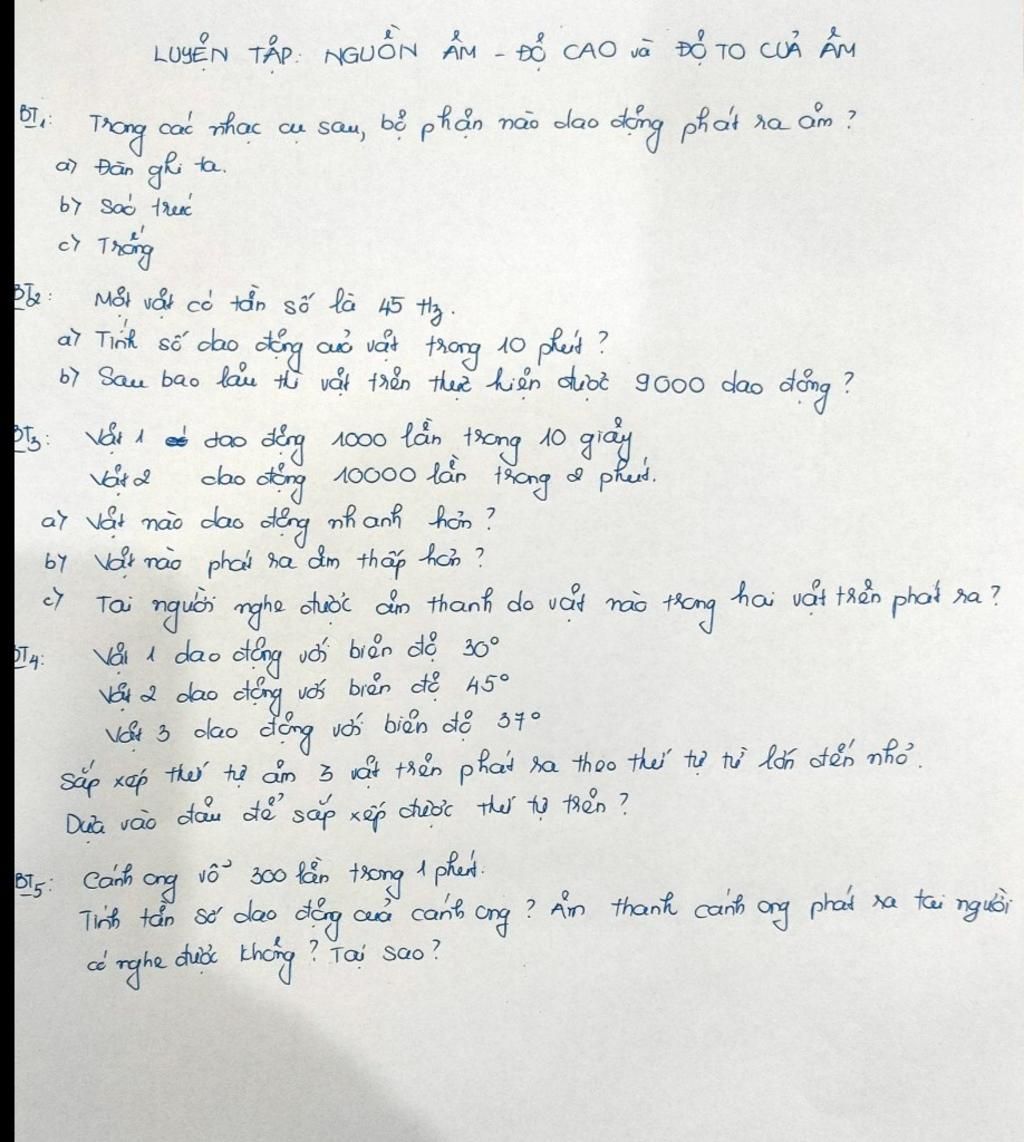 LUYỆN TẬP: NGUỒN ÂM - ĐỘ CAO và ĐỘ TO CỦA ÂM
BT1: Trong các nhạc cụ sau, bộ phận nào dao động phát ra âm?
a) Đàn ghi ta.
b) Sáo trúc
c) Trống
BT2: Một vật có tần số là 45 Hz.
a) Tính số dao động của vật trong 10 phút?
b) Sau bao lâu thì vật trên thực hiện được 9000 dao động?
BT3: Vật 1 dao động 1000 lần trong 10 giây
Vật 2 dao động 10000 lần trong 2 phút.
a) Vật nào dao động nhanh hơn?
b) Vật nào phát ra âm thấp hơn?
c) Tai người nghe được âm thanh do vật nào trong hai vật trên phát ra?
BT4: Vật 1 dao động với biên độ 30°
Vật 2 dao động với biên độ 45°
Vật 3 dao động với biên độ 37°
Sắp xếp thứ tự âm 3 vật trên phát ra theo thứ tự từ lớn đến nhỏ.
Dựa vào đâu để sắp xếp được thứ tự trên?
BT5: Cánh ong vỗ 300 lần trong 1 phút.
Tính tần số dao động của cánh ong? Âm thanh cánh ong phát ra tai người
có nghe được không? Tại sao?